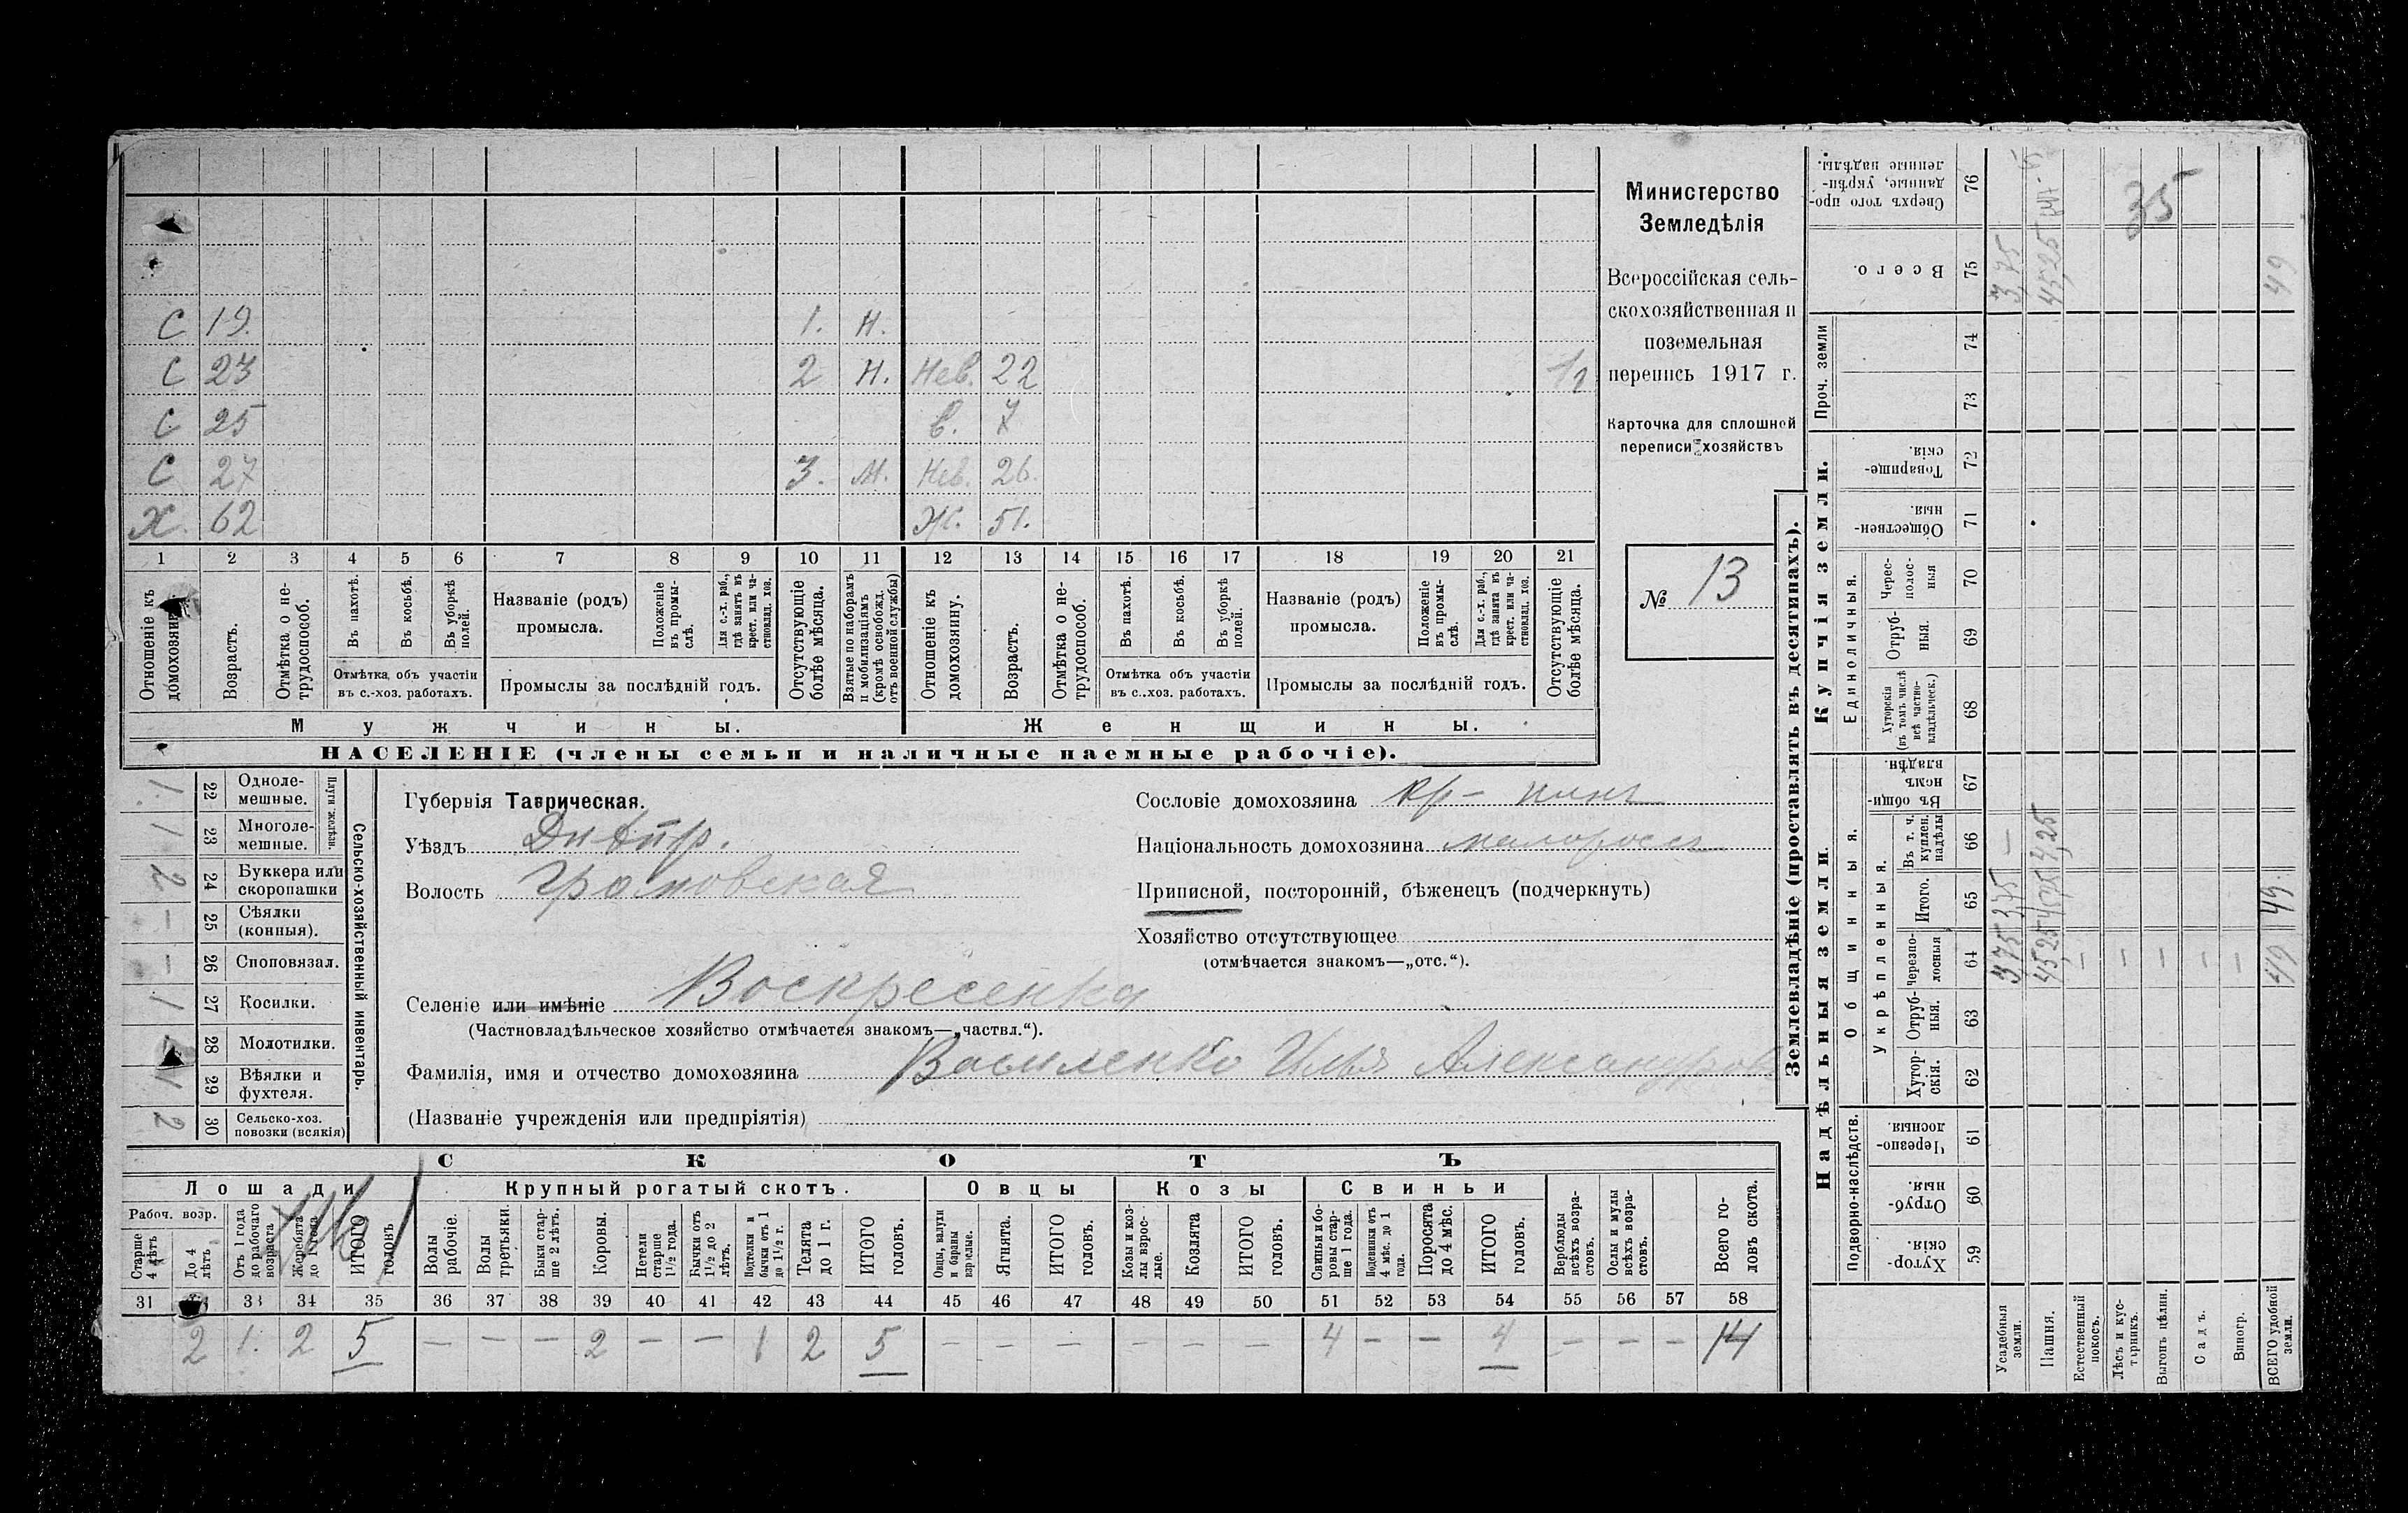 С 19. 1. Н.
С 23 2 Н. Нев. 22
С 25 в. 7
С 27 3. Н. Нев. 26.
Х. 62 Ж. 51.
1 2 3 4 5 6 7 8 9 10 11 12 13 14 15 16 17 18 19 20 21
Отношеніе къ домохозяину.
Возрастъ.
Отмѣтка о не-
трудоспособ.
Въ пахотѣ.
Въ косьбѣ.
Въ уборкѣ
полей.
Отмѣтка объ участіи
въ с.-хоз. работахъ.
Названіе (родъ)
промысла.
Положеніе
въ промы-
слѣ.
Для с.-х. раб.,
гдѣ занятъ въ
крест. или ча-
стновлад. хоз.
Промыслы за послѣдній годъ.
Отсутствующіе
болѣе мѣсяца.
Взятые по наборамъ
и мобилизаціямъ
(кромѣ освобожд.
отъ военной службы)
Отношеніе къ
домохозяину.
Возрастъ.
Отмѣтка о не-
трудоспособ.
Въ пахотѣ.
Въ косьбѣ.
Въ уборкѣ
полей.
Отмѣтка объ участіи
въ с..хоз. работахъ.
Названіе (родъ)
промысла.
Положеніе
въ промы-
слѣ.
Для с.-х. раб.,
гдѣ занята въ
крест. или ча-
стновлад. хоз.
Промыслы за послѣдній годъ.
Отсутствующіе
болѣе мѣсяца.
Мужчины.
Женщины.
НАСЕЛЕНІЕ (члены семьи и наличные наемные рабочіе).
Министерство
Земледѣлія
Всероссійская сель-
скохозяйственная и
поземельная
перепись 1917 г.
Карточка для сплошной
переписи хозяйствъ
№ 13
1. 22 Одноле-
мешные.
1 23 Многоле-
мешные.
Плуги желѣзн.
2 24 Буккера или
скоропашки
– 25 Сѣялки
(конныя).
– 26 Споповязал.
1 27 Косилки.
28 Молотилки.
1 29 Вѣялки и
фухтеля.
2 30 Сельско-хоз.
повозки (всякія)
Сельско-хозяйственный инвентарь.
Губернія Таврическая.
Уѣздъ Днѣпр.
Волость Громовская
Селеніе или имѣніе Воскресенка
(Частновладѣльческое хозяйство отмѣчается знакомъ—„частвл.“).
Фамилія, имя и отчество домохозяина Василенко Илья Александров
(Названіе учрежденія или предпріятія)
Сословіе домохозяина кр-нинъ
Національность домохозяина малороссъ
Приписной, посторонній, бѣженецъ (подчеркнуть)
Хозяйство отсутствующее
(отмѣчается знакомъ—„отс.“).
СКОТЪ
Лошади
Рабоч. возр.
Старше
4 лѣтъ
До 4
лѣтъ
Отъ 1 года
до рабочаго
возраста
Жеребята
до 1 года
ИТОГО
головъ
Крупный рогатый скотъ.
Волы
рабочіе.
Волы
третьяки.
Быки стар-
ше 2 лѣтъ.
Коровы.
Нетели
старше
1½ года.
Бычки отъ
1½ до 2
лѣтъ.
Подтелки и
бычки отъ 1
до 1½ г.
Телята
до 1 г.
ИТОГО
головъ.
Овцы
Овцы, валухи
и бараны
взрослые.
Ягнята.
ИТОГО
головъ.
Козы
Козы и коз-
лы взрос-
лые.
Козлята
ИТОГО
головъ.
Свиньи
Свиньи и бо-
ровы стар-
ше 1 года.
Подсвинки отъ
4 мѣс. до 1
года.
Поросята
до 4 мѣс.
ИТОГО
головъ.
Верблюды
всѣхъ возра-
стовъ.
Ослы и мулы
всѣхъ возра-
стовъ.
Всего го-
ловъ скота.
31 33 34 35 36 37 38 39 40 41 42 43 44 45 46 47 48 49 50 51 52 53 54 55 56 57 58
2 1. 2 5 — — — 2 — — 1 2 5 — — — — — — 4 — — 4 — — — 14
Землевладѣніе (проставлять въ десятинахъ).
Купчія земли.
Сверхъ того про-
данные, укрѣп-
ленные надѣлы. 76
Всего. 75
Проч. земли
74
73
Товарище-
скія. 72
Обществен-
ныя. 71
Единоличныя.
Черес-
полос-
ныя 70
Отруб-
ныя. 69
Хуторскія
(въ томъ числѣ
всѣ частно-
владѣльческ.) 68
Надѣльныя земли
Общинныя.
Въ общин-
номъ
владѣн. 67
Укрѣпленныя.
Въ т. ч.
куплен.
надѣлы 66
Итого. 65
Черезпо-
лосныя 64
Отруб-
ныя. 63
Хутор-
скія. 62
Подворно-наслѣдств.
Черезпо-
лосныя. 61
Отруб-
ныя. 60
Хутор-
скія. 59
Усадебныя
земли. 3,75 3,75 — 3,75
Пашня. 45,25 45,25 4,25 45,25
Естественный
покосъ. —
Лѣсъ и кус-
тарникъ. — 35
Выгонъ цѣлин. —
Садъ. —
Виногр. —
ВСЕГО удобной
земли. 49 49. 49